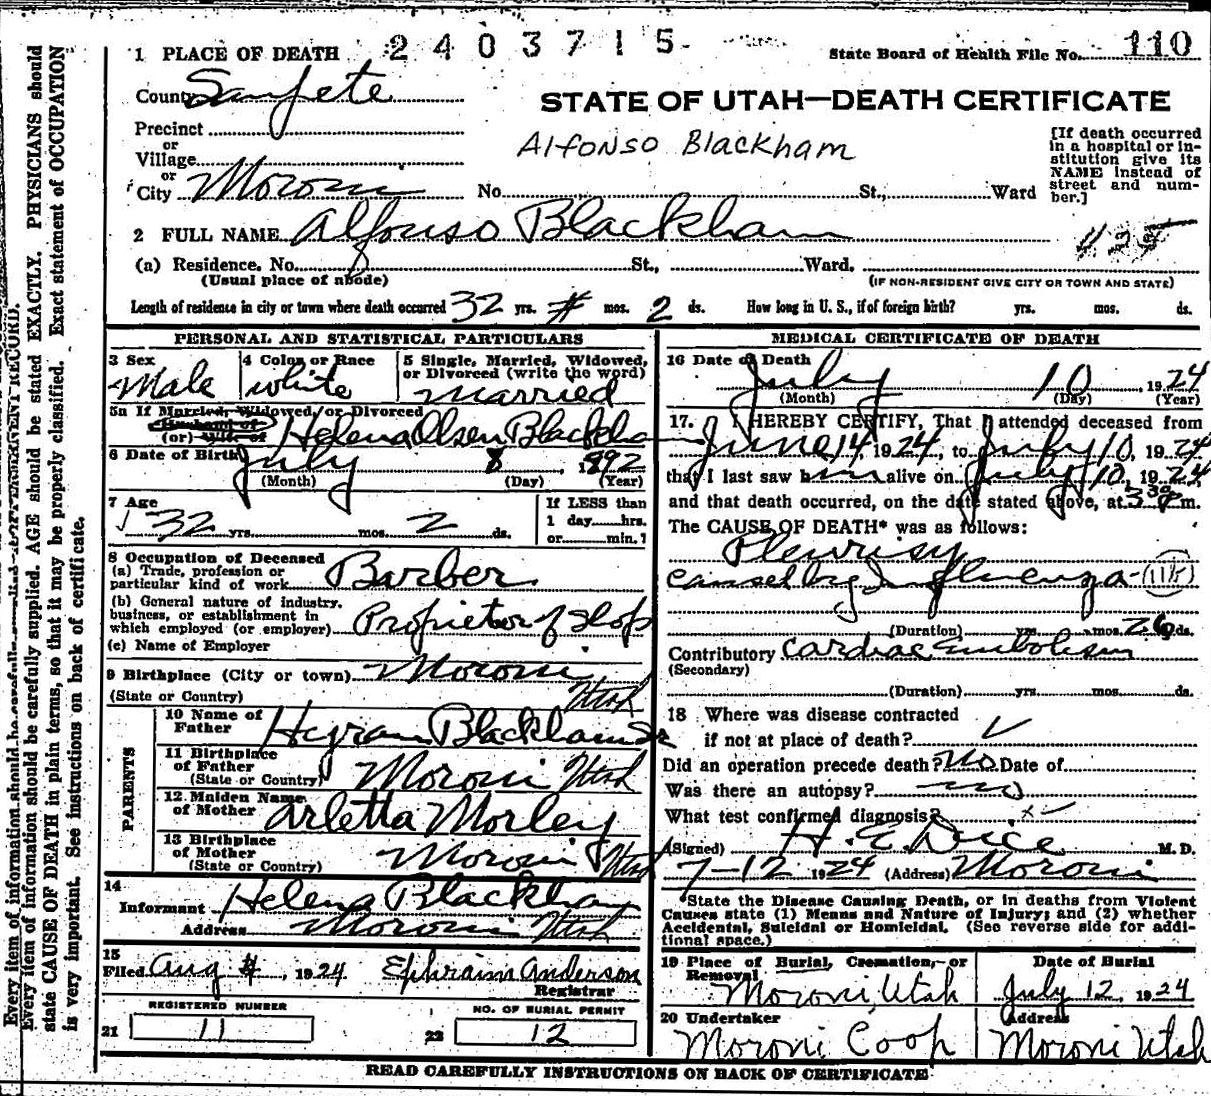 2403715
State Board of Health File No. 110
1 PLACE OF DEATH
County Sanpete
STATE OF UTAH—DEATH CERTIFICATE
Precinct
or
Village
or
City Moroni
Alfonso Blackham
[If death occurred in a hospital or in-
stitution give its
NAME instead of
street and num-
ber.]
No. St., Ward
2 FULL NAME Alfonso Blackham
(a) Residence. No. St., Ward.
(Usual place of abode)
(IF NON-RESIDENT GIVE CITY OR TOWN AND STATE)
Length of residence in city or town where death occurred 32 yrs. mos. 2 ds. How long in U. S., if of foreign birth? yrs. mos. ds.
PERSONAL AND STATISTICAL PARTICULARS
3 Sex
Male
4 Color or Race
white
5 Single, Married, Widowed,
or Divorced (write the word)
married
5a If Married, Widowed, or Divorced
Husband of
(or) Wife of Helena Olsen Blackham
6 Date of Birth July 8, 1892
(Month) (Day) (Year)
7 Age
32 yrs. mos. 2 ds.
If LESS than
1 day hrs.
or min.?
8 Occupation of Deceased
(a) Trade, profession or
particular kind of work Barber
(b) General nature of industry,
business, or establishment in
which employed (or employer) Proprietor of Shop
(c) Name of Employer
9 Birthplace (City or town) Moroni
(State or Country) Utah
PARENTS
10 Name of
Father Hyrum Blackham Sr
11 Birthplace
of Father
(State or Country) Moroni Utah
12 Maiden Name
of Mother Arletta Morley
13 Birthplace
of Mother
(State or Country) Moroni Utah
14
Informant Helena Blackham
Address Moroni Utah
15
Filed Aug 4, 1924 Ephraim Anderson
Registrar
REGISTERED NUMBER
21 11
NO. OF BURIAL PERMIT
22 12
MEDICAL CERTIFICATE OF DEATH
16 Date of Death
July 10, 1924
(Month) (Day) (Year)
17. I HEREBY CERTIFY, That I attended deceased from
June 14 1924, to July 10, 1924
that I last saw him alive on July 10, 1924
and that death occurred, on the date stated above, at 3 30 p m.
The CAUSE OF DEATH* was as follows:
Pleurisy
caused by Influenza
(Duration) yrs. mos. 26 ds.
Contributory cardiac embolism
(Secondary)
(Duration) yrs. mos. ds.
18 Where was disease contracted
if not at place of death?
Did an operation precede death? No Date of
Was there an autopsy? no
What test confirmed diagnosis?
(Signed) H. E. Dice M. D.
7-12 1924 (Address) Moroni
*State the Disease Causing Death, or in deaths from Violent
Causes state (1) Means and Nature of Injury; and (2) whether
Accidental, Suicidal or Homicidal. (See reverse side for addi-
tional space.)
19 Place of Burial, Cremation, or
Removal
Moroni, Utah
Date of Burial
July 12, 1924
20 Undertaker
Moroni Coop
Address
Moroni Utah
READ CAREFULLY INSTRUCTIONS ON BACK OF CERTIFICATE
Every item of information should be carefully supplied. AGE should be stated EXACTLY. PHYSICIANS should
state CAUSE OF DEATH in plain terms, so that it may be properly classified. Exact statement of OCCUPATION
is very important. See instructions on back of certificate.